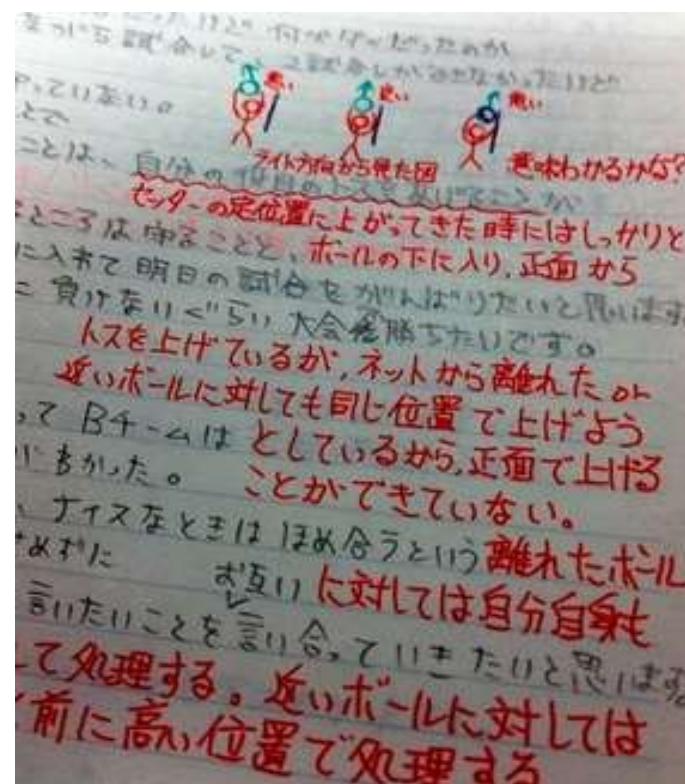 何がダメだったのか
試合して、2試合しかできなかったけど
悪い 良い 悪い
っていない。
ライト方向から見た図 意味わかるかな?
ことは、自分の
セッターの定位置に上がってきた時にはしっかりと
ところは守ることと、ボールの下に入り、正面から
に入れて明日の試合をがんばりたいと思います。
に負けないぐらい大会勝ちたいです。
トスを上げているが、ネットから離れた or
近いボールに対しても同じ位置で上げよう
って Bチームは としているから、正面で上げる
ことができていない。
、ナイスなときはほめ合うという 離れたボール
めずに お互い に対しては自分自身も
言いたいことを言い合っていきたいと思います。
して処理する。近いボールに対しては
前に高い位置で処理する